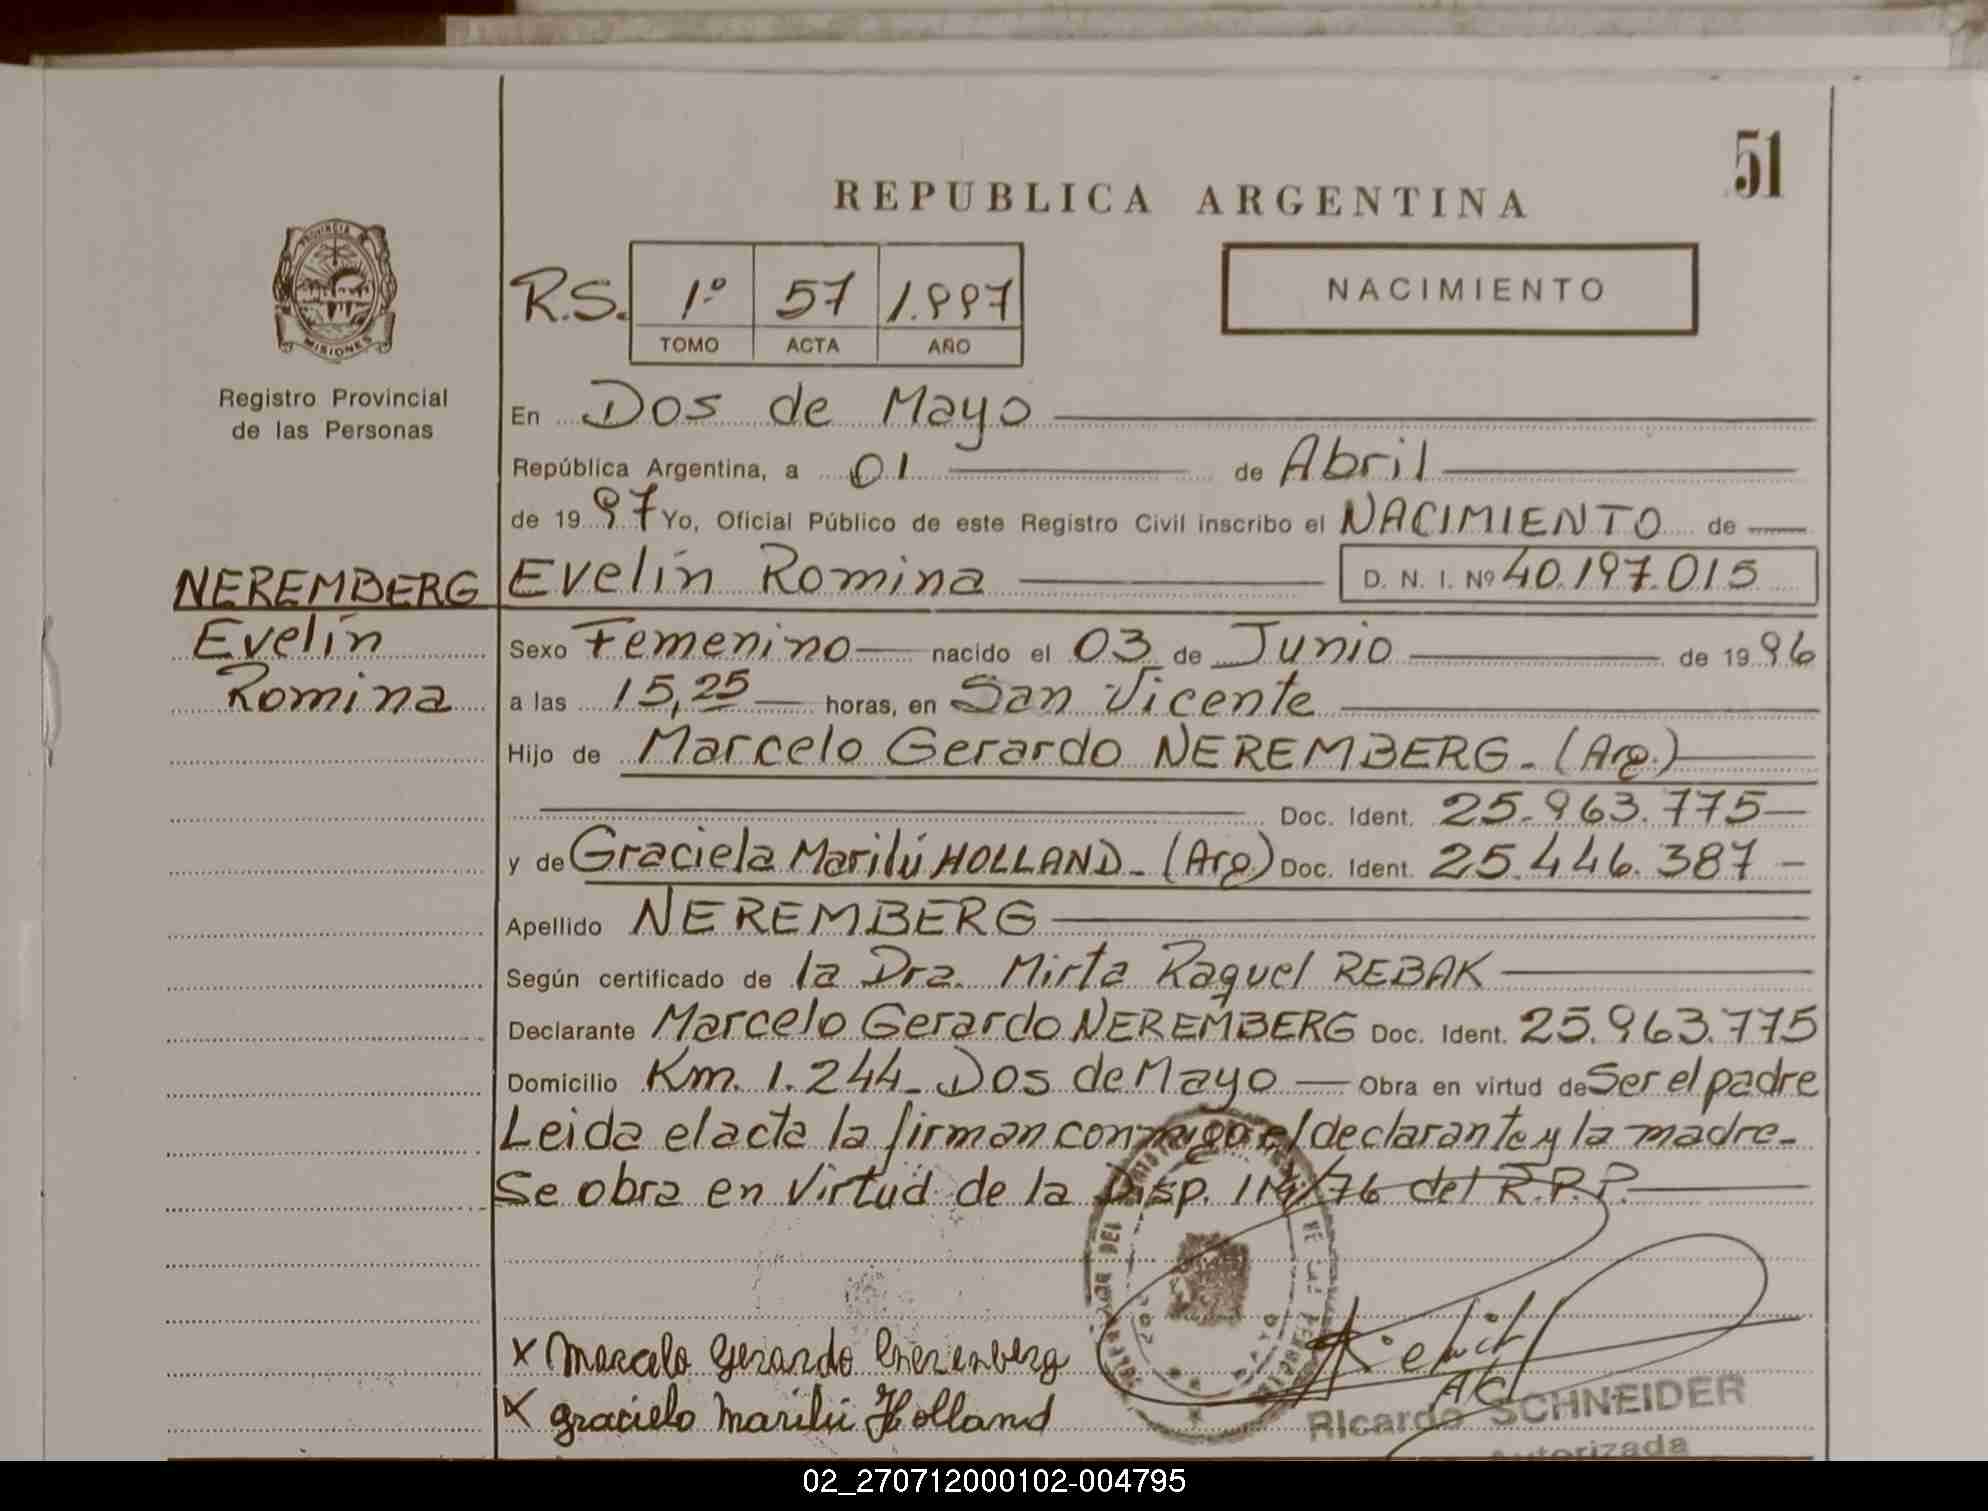 51
REPUBLICA ARGENTINA
PROVINCIA DE
MISIONES
R.S. 1º 57 1.997
TOMO ACTA AÑO
NACIMIENTO
Registro Provincial
de las Personas
En Dos de Mayo
República Argentina, a 01 de Abril
de 1997 Yo, Oficial Público de este Registro Civil inscribo el NACIMIENTO de
NEREMBERG Evelín Romina D. N. I. Nº 40.197.015
Evelín Sexo Femenino nacido el 03 de Junio de 1996
Romina a las 15,25 horas, en San Vicente
Hijo de Marcelo Gerardo NEREMBERG. (Arg.)
Doc. Ident. 25.963.775
y de Graciela Marilú HOLLAND. (Arg) Doc. Ident. 25.446.387
Apellido NEREMBERG
Según certificado de la Dra. Mirta Raquel REBAK
Declarante Marcelo Gerardo NEREMBERG Doc. Ident. 25.963.775
Domicilio Km. 1.244_ Dos de Mayo Obra en virtud de Ser el padre
Leida el acta la firman conmigo el declarante y la madre.
Se obra en virtud de la Disp. /76 del R.P.P.
x Marcelo Gerardo Neremberg
x Graciela Marilú Holland
A/C
Ricardo SCHNEIDER
Autorizada
02_270712000102-004795